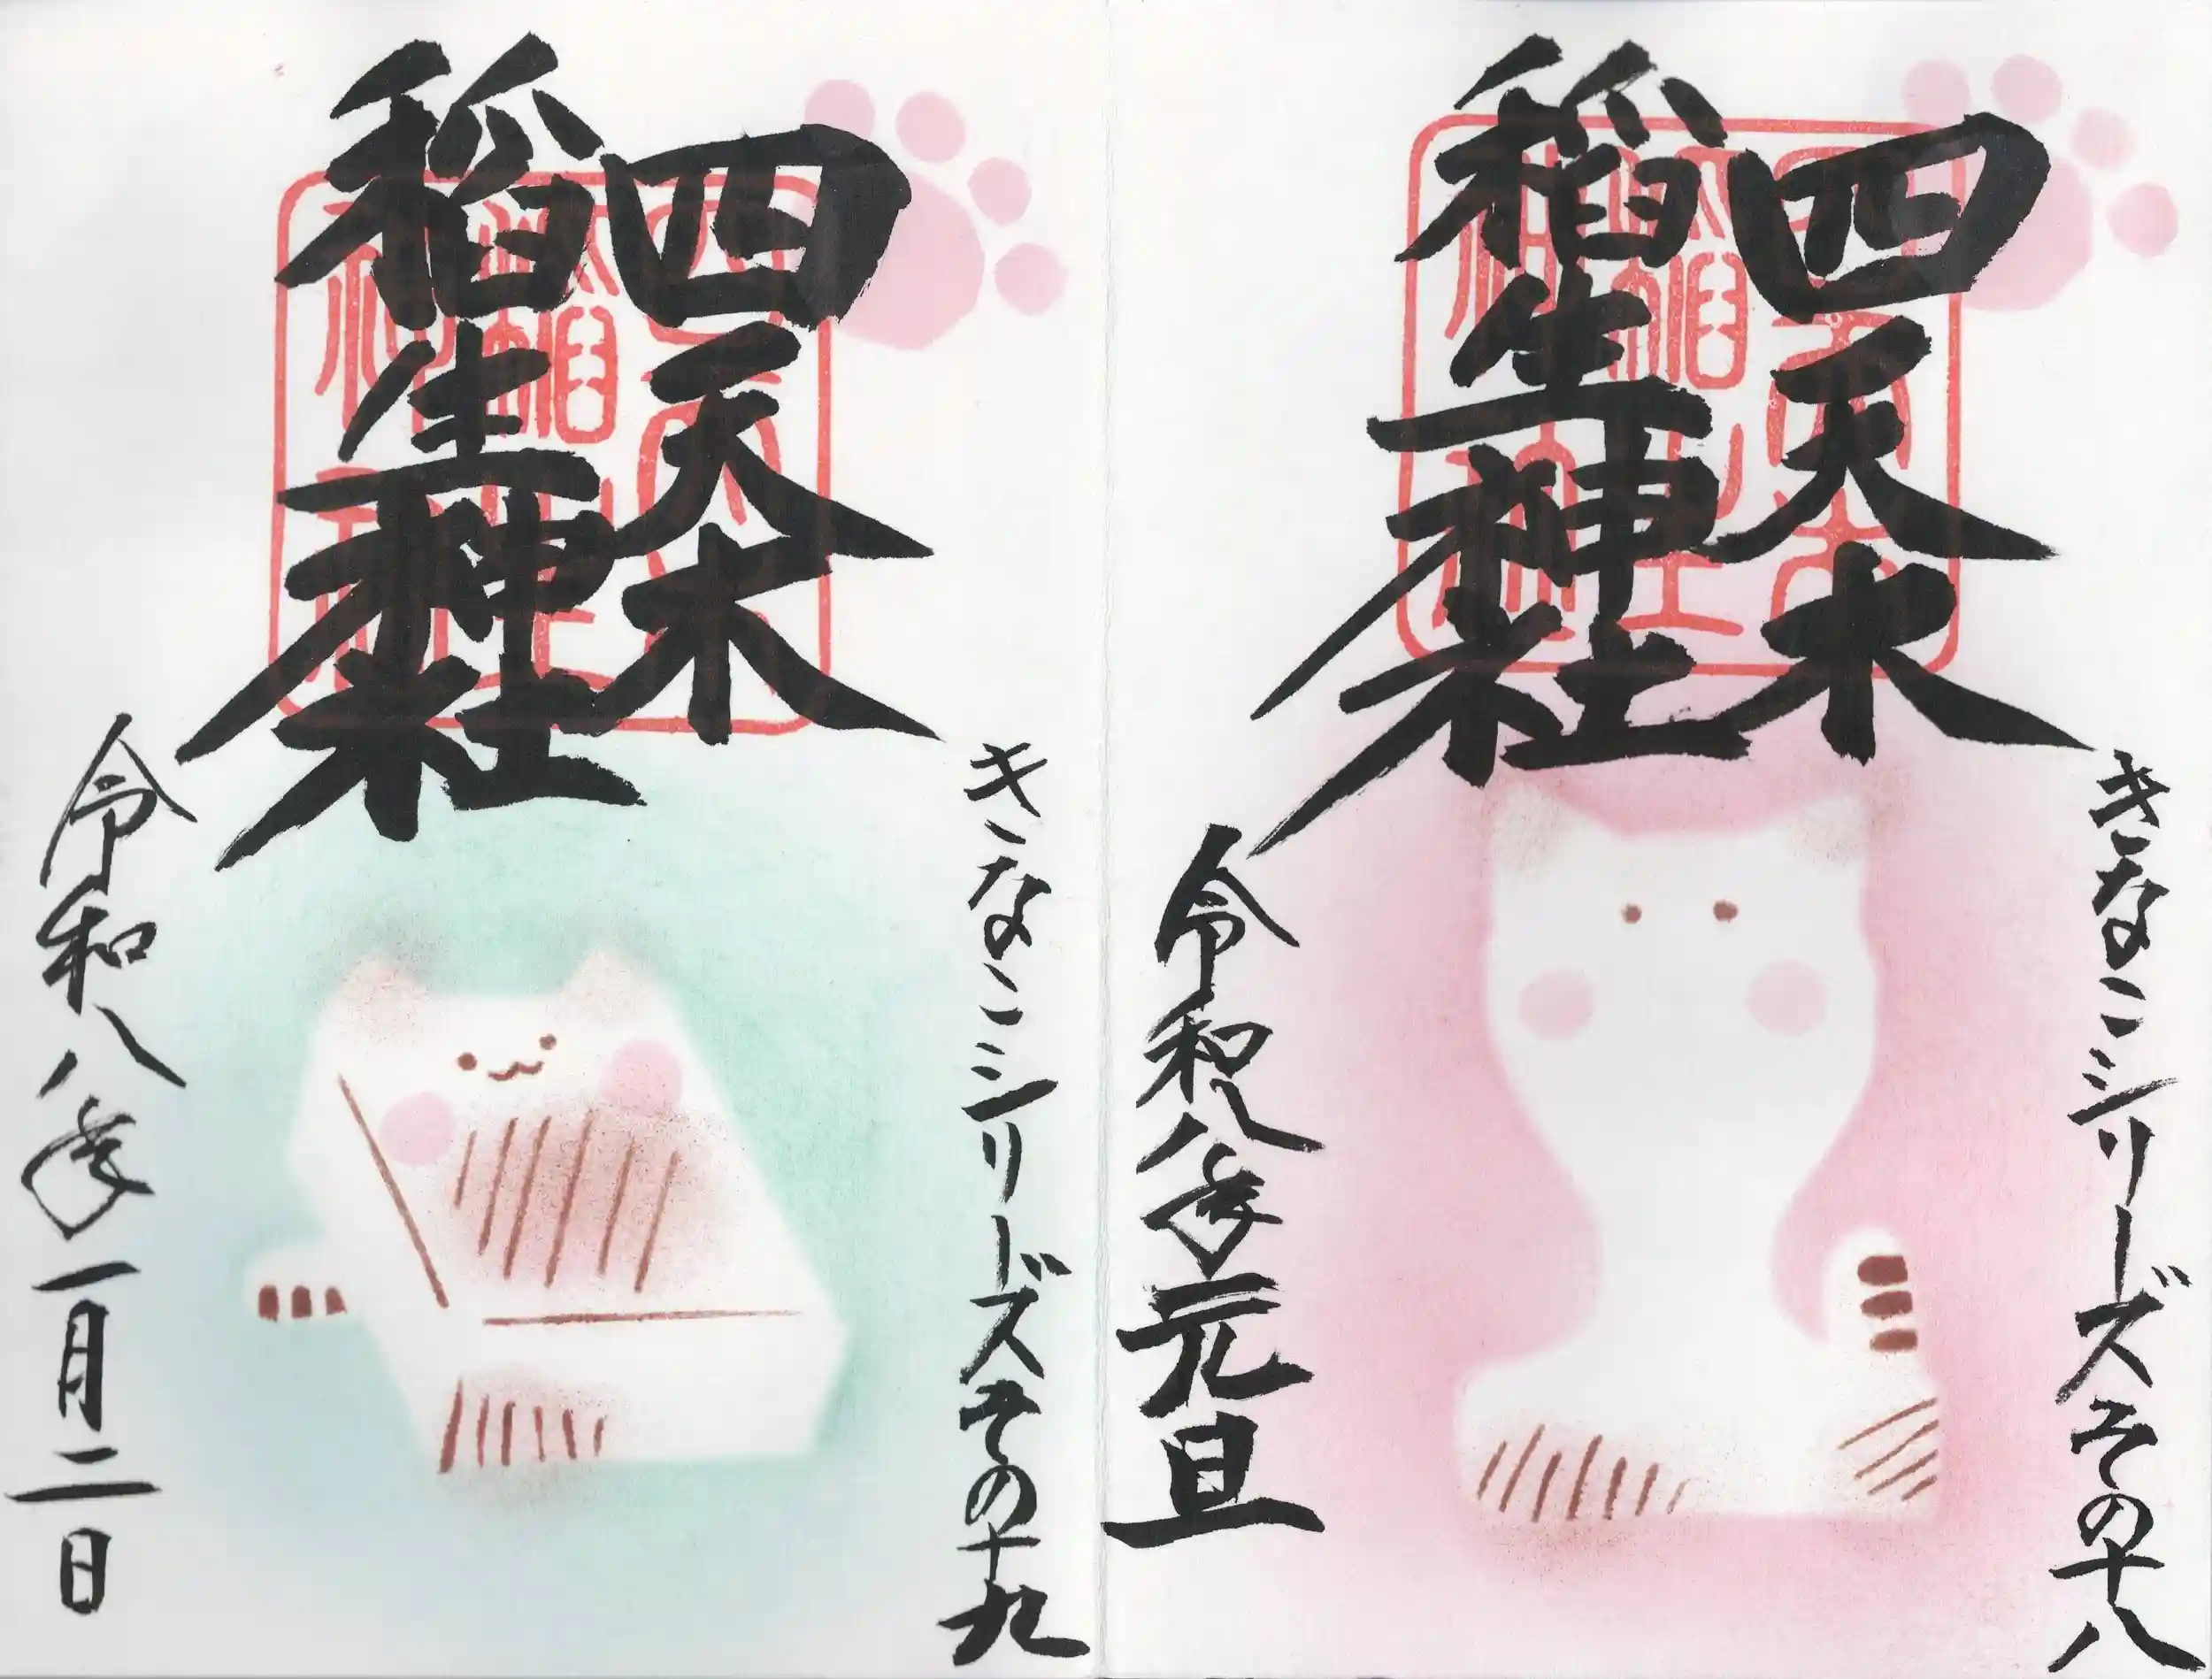 きなこシリーズその十八
四天木
稲生神社
令和八年元旦
きなこシリーズその十九
四天木
稲生神社
令和八年一月二日